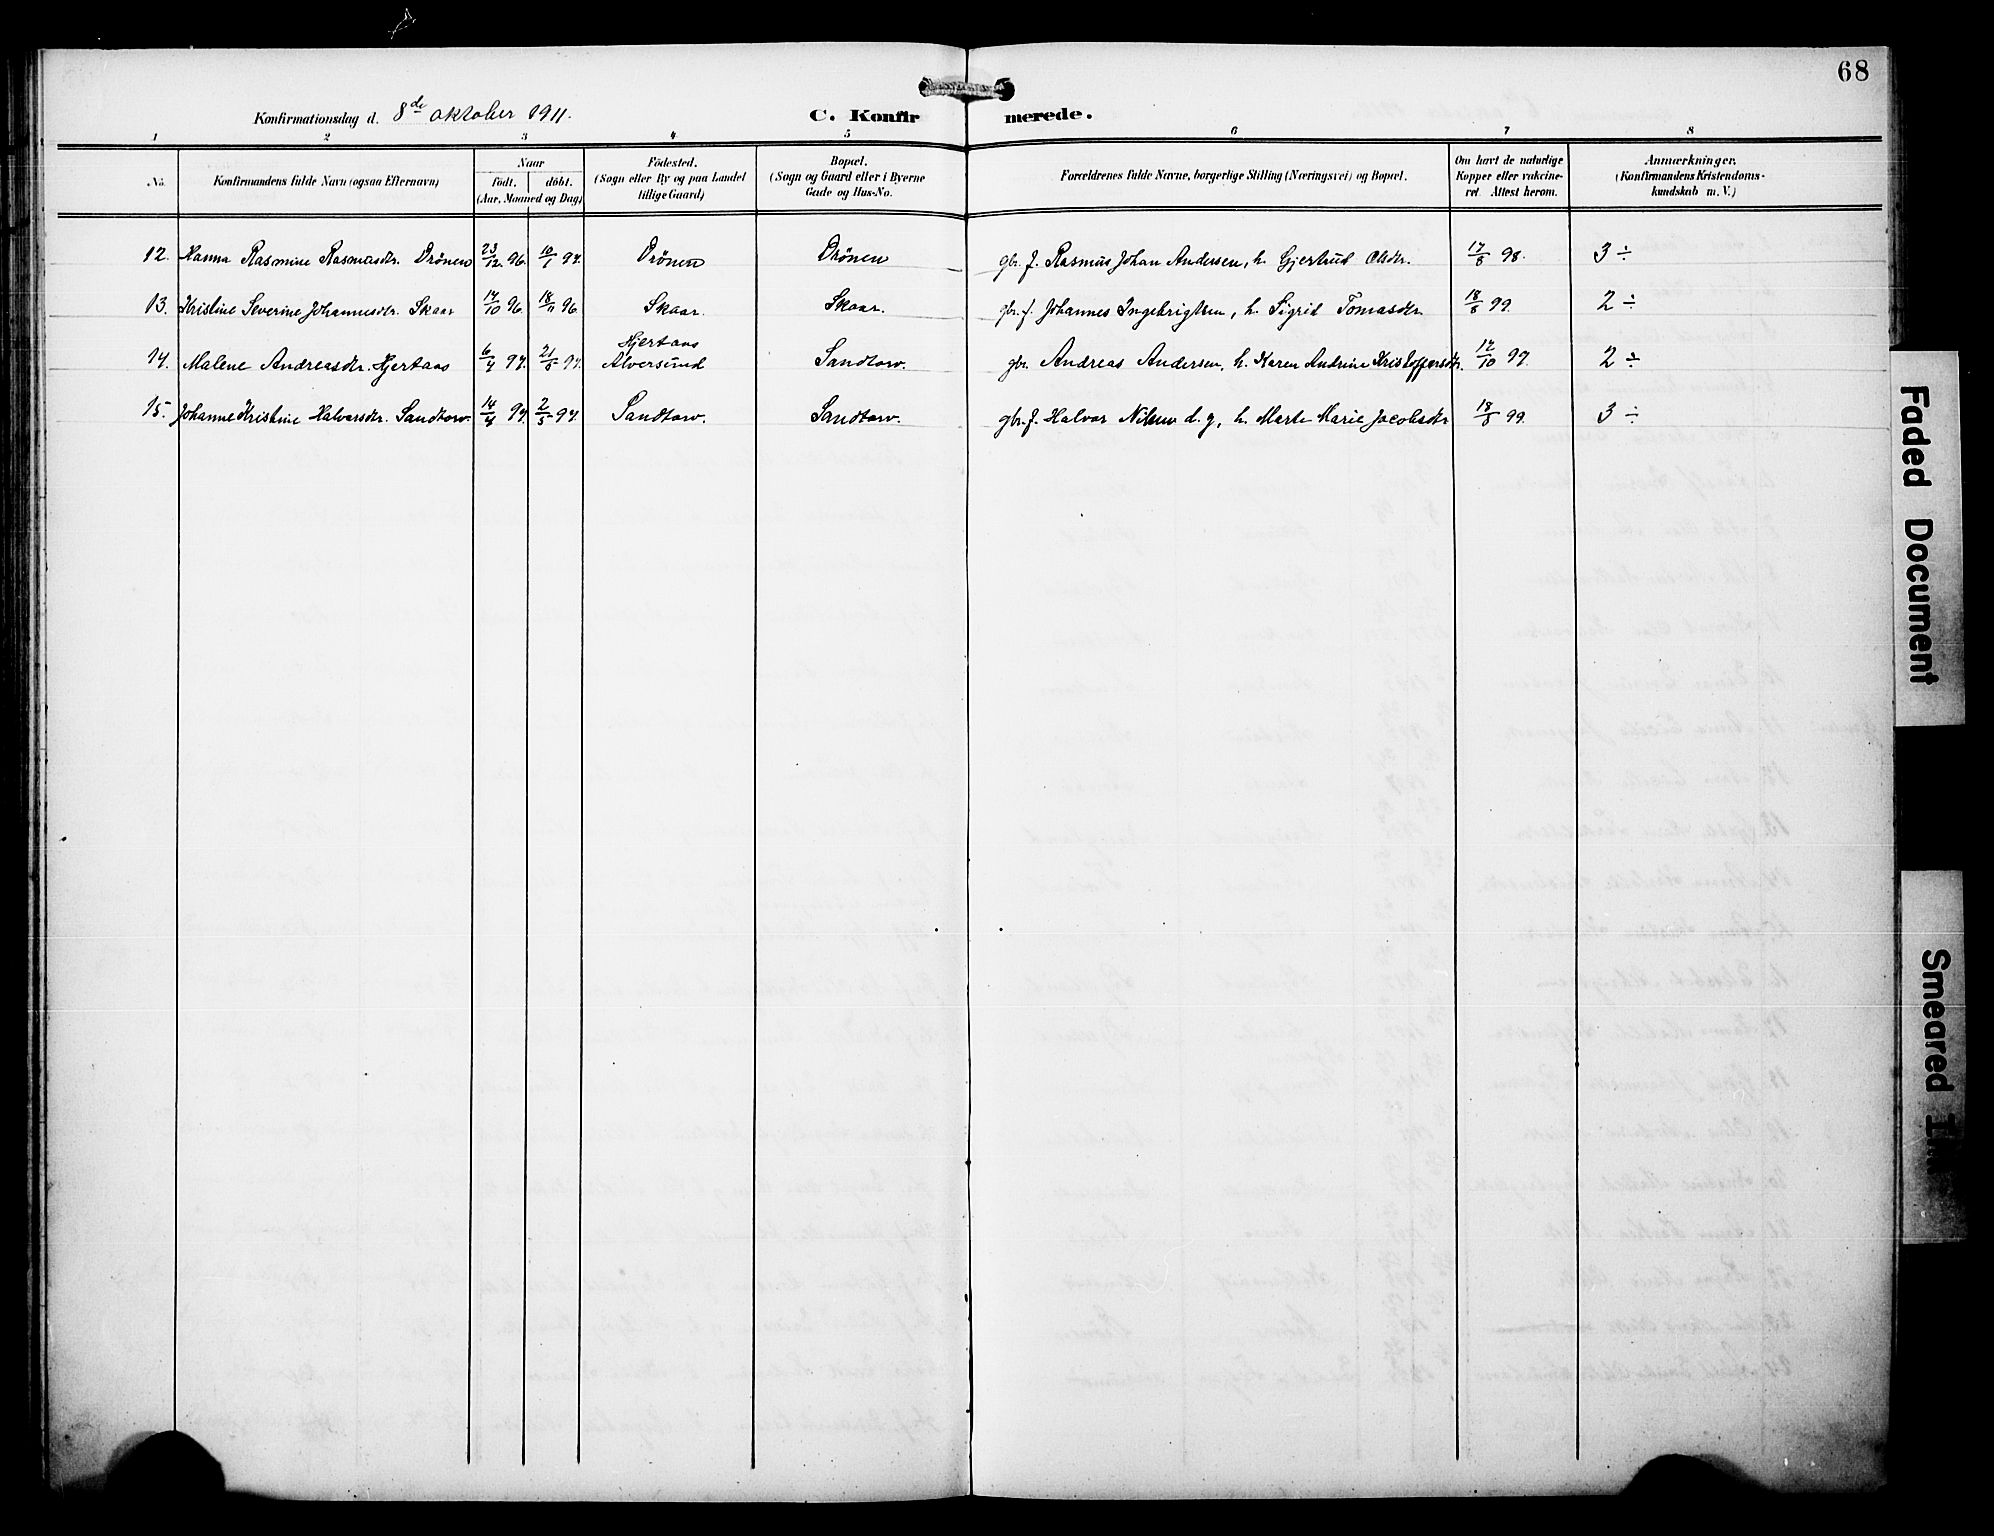 68
Konfirmationsdag d. 8de oktober 1911.
C. Konfirmerede.
1 2 3 4 5 6 7 8
No.
Konfirmandens fulde Navn (ogsaa Efternavn)
Naar
født. døbt.
(Aar, Maaned og Dag)
Födested.
(Sogn eller By og paa Landet
tillige Gaard)
Bopæl.
(Sogn og Gaard eller i Byerne
Gade og Hus-No.
Forældrenes fulde Navne, borgerlige Stilling (Næringsvei) og Bopæl.
Om havt de naturlige
Kopper eller vakcine-
ret. Attest herom.
Anmærkninger.
(Konfirmandens Kristendoms-
kundskab m. V.)
12. Hanna Rasmine Rasmusdtr. Drönen 23/12 96. 10/1 97. Drönen Drönen gbr. f. Rasmus Johan Andersen, h. Gjertrud Olsdtr. 17/8 98. 3 ÷
13. Kristine Severine Johannesdtr. Skaar 14/10 96. 18/11 96. Skaar. Skaar. gbr. f. Johannes Ingebrigtsen, h. Sigrid Tomasdtr. 18/8 99. 2 ÷
14. Malene Andreasdtr. Hjertaas 6/4 97. 21/5 97. Hjertaas Alversund Sandtorv. gbr. Andreas Andersen, h. Karen Andrine Kristoffersdtr. 17/10 97. 2 ÷
15. Johanne Kristine Halvorsdtr. Sandtorv. 14/4 97. 2/5 97. Sandtorv. Sandtorv. gbr. f. Halvor Nilsen d. y., h. Marte Marie Jacobsdtr 18/8 99. 3 ÷
Faded Document
Smeared